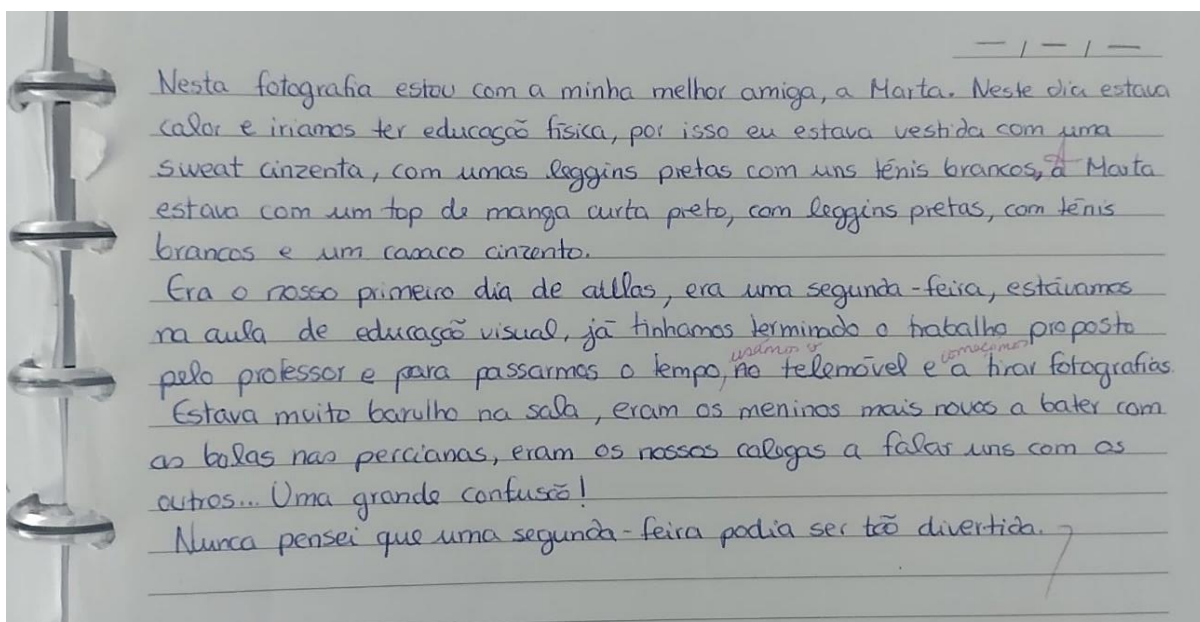 — / — / —
Nesta fotografia estou com a minha melhor amiga, a Marta. Neste dia estava
calor e iriamos ter educação física, por isso eu estava vestida com uma
sweat cinzenta, com umas leggins pretas com uns ténis brancos, A Marta
estava com um top de manga curta preto, com leggins pretas, com ténis
brancos e um casaco cinzento.
Era o nosso primeiro dia de aulas, era uma segunda-feira, estávamos
na aula de educação visual, já tinhamos terminado o trabalho proposto
usámos o começámos
pelo professor e para passarmos o tempo, no telemóvel e a tirar fotografias.
Estava muito barulho na sala, eram os meninos mais novos a bater com
as bolas nas percianas, eram os nossos colegas a falar uns com os
outros... Uma grande confusão!
Nunca pensei que uma segunda-feira podia ser tão divertida.